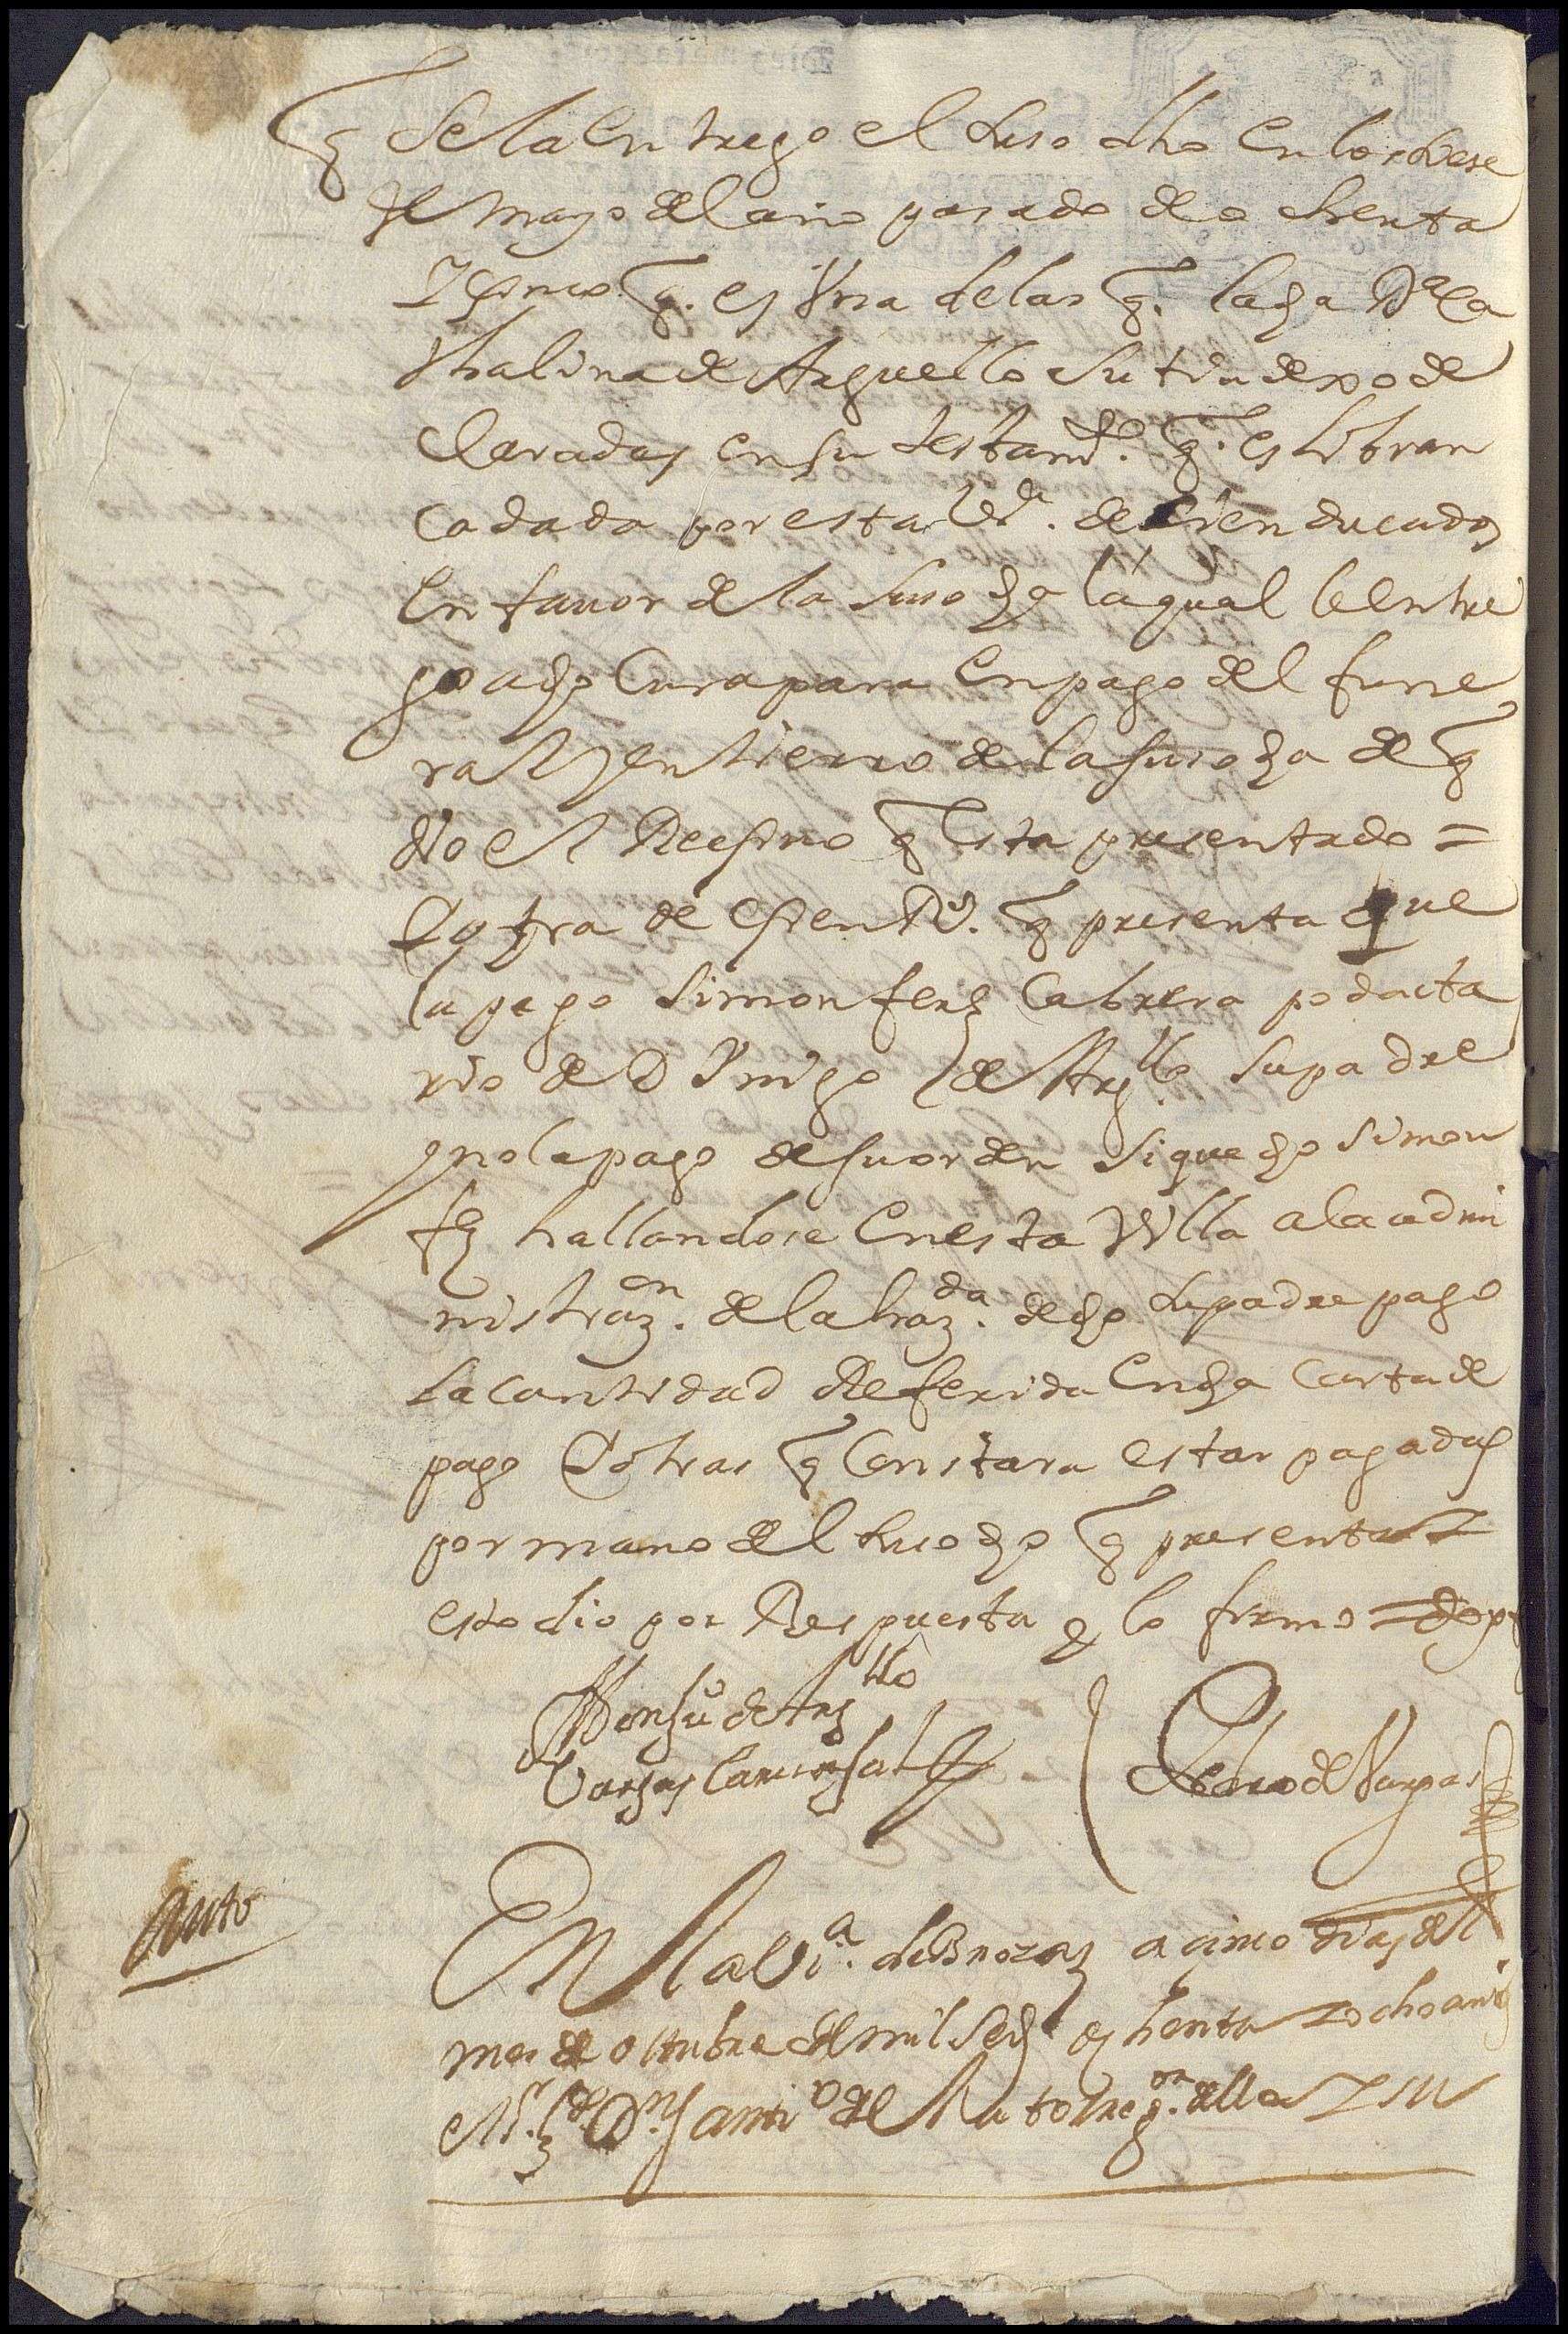 q se la entrego el suso dho en los trese
de mayo del año pasado de ochenta
y sinco q. es Una de las q. la dha Dª Ca
thalina de Arguello su tia dexo de
claradas en su testamto. q. es libran
ca dada por esta de cien ducados
en fauor de la suso dha la qual le entre
go a dho Cura para en pago del fune
ral y entierro de la suso dha de q
dio el Recsiuo q esta presentado =
Y otra de q presenta que
la pago Simon ferz Cabrera podacta
rio de D Ynigo de Argllo su padre
y no la pago de su orden si que dho Simon
fz hallandose en esta Villa a la admi
nistrazon. de la hazda. de dho su padre pago
la cantidad Referida en dha carta de
pago Y otras q constara estar pagadas
por mano del suso dho q presenta y
esto dio por Respuesta y lo firmo =
de Argllo
Vargas Caruajal
Pedro de Vargas
auto
En la Viª. de Brozas a cinco dias del
mes de octubre de mil seisº ochenta y ocho años
el Sr. Ldo. Dn. Santiº de corregor. della y su